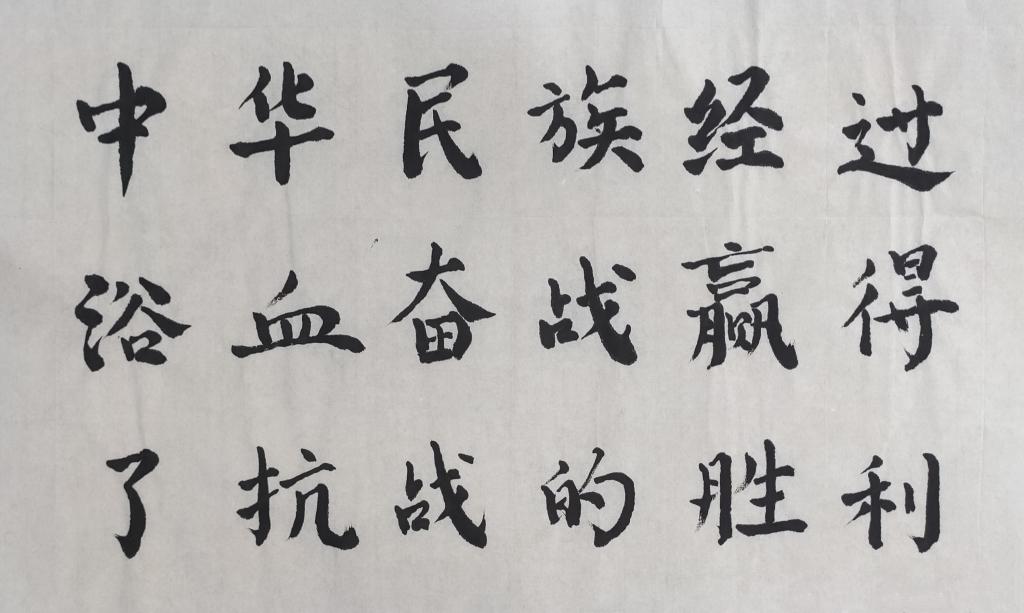 中华民族经过
浴血奋战赢得
了抗战的胜利